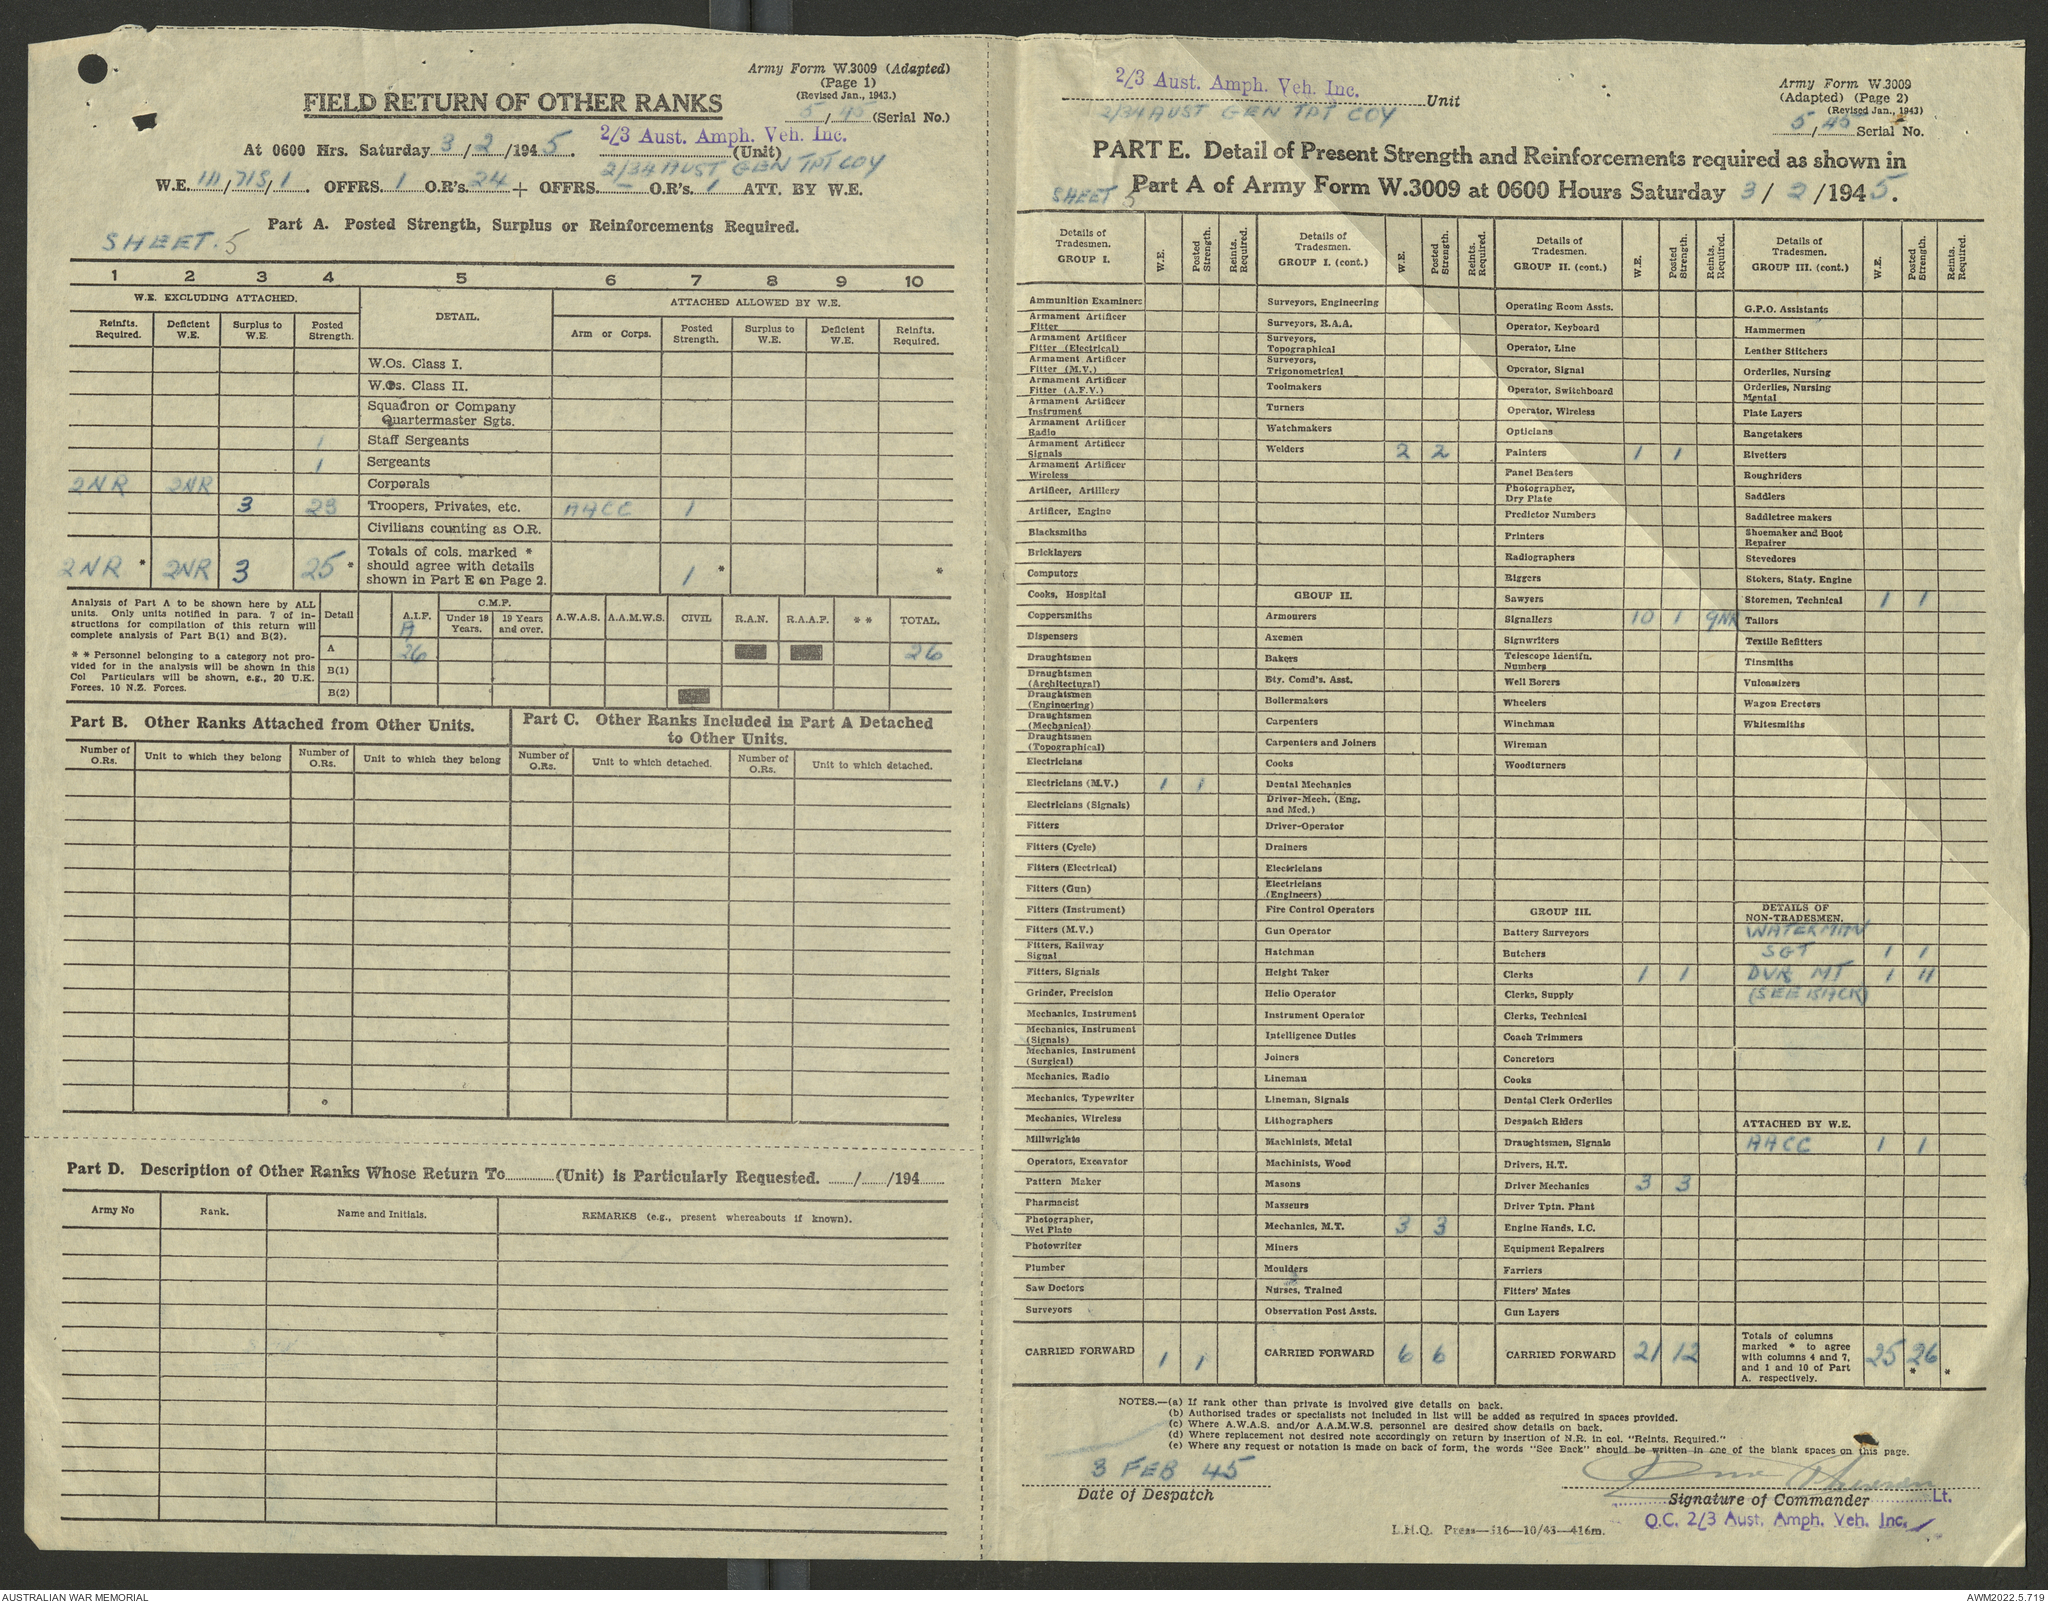 Army Form W.3009 (Adapted)
(Page 1)
(Revised Jan., 1943.)
FIELD RETURN OF OTHER RANKS
5/45 (Serial No.)
2/3 Aust. Amph. Veh. Inc.
At 0600 Hrs. Saturday 3/2/1945. (Unit)
2/34 AUST GEN TPT COY
W.E. III/715/1. OFFRS. 1 O.R's. 24 + OFFRS. — O.R's. 1 ATT. BY W.E.
Part A. Posted Strength, Surplus or Reinforcements Required.
SHEET. 5
1 2 3 4 5 6 7 8 9 10
W.E. EXCLUDING ATTACHED. DETAIL. ATTACHED ALLOWED BY W.E.
Reinfts. Required. Deficient W.E. Surplus to W.E. Posted Strength. Arm or Corps. Posted Strength. Surplus to W.E. Deficient W.E. Reinfts. Required.
W.Os. Class I.
W.Os. Class II.
Squadron or Company
Quartermaster Sgts.
1 Staff Sergeants
1 Sergeants
2NR 2NR Corporals
3 23 Troopers, Privates, etc. AACC 1
Civilians counting as O.R.
2NR * 2NR 3 25 * Totals of cols. marked * should agree with details shown in Part E on Page 2. 1 * *
Analysis of Part A to be shown here by ALL
units. Only units notified in para. 7 of in-
structions for compilation of this return will
complete analysis of Part B(1) and B(2).
* * Personnel belonging to a category not pro-
vided for in the analysis will be shown in this
Col Particulars will be shown, e.g., 20 U.K.
Forces. 10 N.Z. Forces.
Detail A.I.F. C.M.F. Under 19 Years. 19 Years and over. A.W.A.S. A.A.M.W.S. CIVIL R.A.N. R.A.A.F. * * TOTAL.
A 26 26
B(1)
B(2)
Part B. Other Ranks Attached from Other Units.
Part C. Other Ranks Included in Part A Detached
to Other Units.
Number of O.Rs. Unit to which they belong Number of O.Rs. Unit to which they belong Number of O.Rs. Unit to which detached. Number of O.Rs. Unit to which detached.
Part D. Description of Other Ranks Whose Return To (Unit) is Particularly Requested. / /194
Army No Rank. Name and Initials. REMARKS (e.g., present whereabouts if known).
2/3 Aust. Amph. Veh. Inc. Unit
2/34 AUST GEN TPT COY
Army Form W.3009
(Adapted) (Page 2)
(Revised Jan., 1943)
5/45 Serial No.
PART E. Detail of Present Strength and Reinforcements required as shown in
Part A of Army Form W.3009 at 0600 Hours Saturday 3/2/1945.
SHEET 5
Details of Tradesmen. GROUP I. W.E. Posted Strength. Reints. Required.
Ammunition Examiners
Armament Artificer Fitter
Armament Artificer Fitter (Electrical)
Armament Artificer Fitter (M.V.)
Armament Artificer Fitter (A.F.V.)
Armament Artificer Instrument
Armament Artificer Radio
Armament Artificer Signals
Armament Artificer Wireless
Artificer, Artillery
Artificer, Engine
Blacksmiths
Bricklayers
Computors
Cooks, Hospital
Coppersmiths
Dispensers
Draughtsmen
Draughtsmen (Architectural)
Draughtsmen (Engineering)
Draughtsmen (Mechanical)
Draughtsmen (Topographical)
Electricians
Electricians (M.V.) 1 1
Electricians (Signals)
Fitters
Fitters (Cycle)
Fitters (Electrical)
Fitters (Gun)
Fitters (Instrument)
Fitters (M.V.)
Fitters, Railway Signal
Fitters, Signals
Grinder, Precision
Mechanics, Instrument
Mechanics, Instrument (Signals)
Mechanics, Instrument (Surgical)
Mechanics, Radio
Mechanics, Typewriter
Mechanics, Wireless
Millwrights
Operators, Excavator
Pattern Maker
Pharmacist
Photographer, Wet Plate
Photowriter
Plumber
Saw Doctors
Surveyors
CARRIED FORWARD 1 1
Details of Tradesmen. GROUP I. (cont.) W.E. Posted Strength. Reints. Required.
Surveyors, Engineering
Surveyors, R.A.A.
Surveyors, Topographical
Surveyors, Trigonometrical
Toolmakers
Turners
Watchmakers
Welders 2 2
GROUP II.
Armourers
Axemen
Bakers
Bty. Comd's. Asst.
Boilermakers
Carpenters
Carpenters and Joiners
Cooks
Dental Mechanics
Driver-Mech. (Eng. and Med.)
Driver-Operator
Drainers
Electricians
Electricians (Engineers)
Fire Control Operators
Gun Operator
Hatchman
Height Taker
Helio Operator
Instrument Operator
Intelligence Duties
Joiners
Lineman
Lineman, Signals
Lithographers
Machinists, Metal
Machinists, Wood
Masons
Masseurs
Mechanics, M.T. 3 3
Miners
Moulders
Nurses, Trained
Observation Post Assts.
CARRIED FORWARD 6 6
Details of Tradesmen. GROUP II. (cont.) W.E. Posted Strength. Reints. Required.
Operating Room Assts.
Operator, Keyboard
Operator, Line
Operator, Signal
Operator, Switchboard
Operator, Wireless
Opticians
Painters 1 1
Panel Beaters
Photographer, Dry Plate
Predictor Numbers
Printers
Radiographers
Riggers
Sawyers
Signallers 10 1 9NR
Signwriters
Telescope Identfn. Numbers
Well Borers
Wheelers
Winchman
Wireman
Woodturners
GROUP III.
Battery Surveyors
Butchers
Clerks 1 1
Clerks, Supply
Clerks, Technical
Coach Trimmers
Concretors
Cooks
Dental Clerk Orderlies
Despatch Riders
Draughtsmen, Signals
Drivers, H.T.
Driver Mechanics 3 3
Driver Tptn. Plant
Engine Hands, I.C.
Equipment Repairers
Farriers
Fitters' Mates
Gun Layers
CARRIED FORWARD 21 12
Details of Tradesmen. GROUP III. (cont.) W.E. Posted Strength. Reints. Required.
G.P.O. Assistants
Hammermen
Leather Stitchers
Orderlies, Nursing
Orderlies, Nursing Mental
Plate Layers
Rangetakers
Rivetters
Roughriders
Saddlers
Saddletree makers
Shoemaker and Boot Repairer
Stevedores
Stokers, Staty. Engine
Storemen, Technical 1 1
Tailors
Textile Refitters
Tinsmiths
Vulcanizers
Wagon Erectors
Whitesmiths
DETAILS OF NON-TRADESMEN.
WATERMAN
SGT 1 1
DVR MT 1 11
(SEE BACK)
ATTACHED BY W.E.
AACC 1 1
Totals of columns marked * to agree with columns 4 and 7, and 1 and 10 of Part A. respectively. 25 26 * *
NOTES.—(a) If rank other than private is involved give details on back.
(b) Authorised trades or specialists not included in list will be added as required in spaces provided.
(c) Where A.W.A.S. and/or A.A.M.W.S. personnel are desired show details on back.
(d) Where replacement not desired note accordingly on return by insertion of N.R. in col. "Reints. Required."
(e) Where any request or notation is made on back of form, the words "See Back" should be written in one of the blank spaces on this page.
3 FEB 45
Date of Despatch
Signature of Commander Lt.
O.C. 2/3 Aust. Amph. Veh. Inc.
L.H.Q. Press—516—10/43—416m.
AUSTRALIAN WAR MEMORIAL
AWM2022.5.719